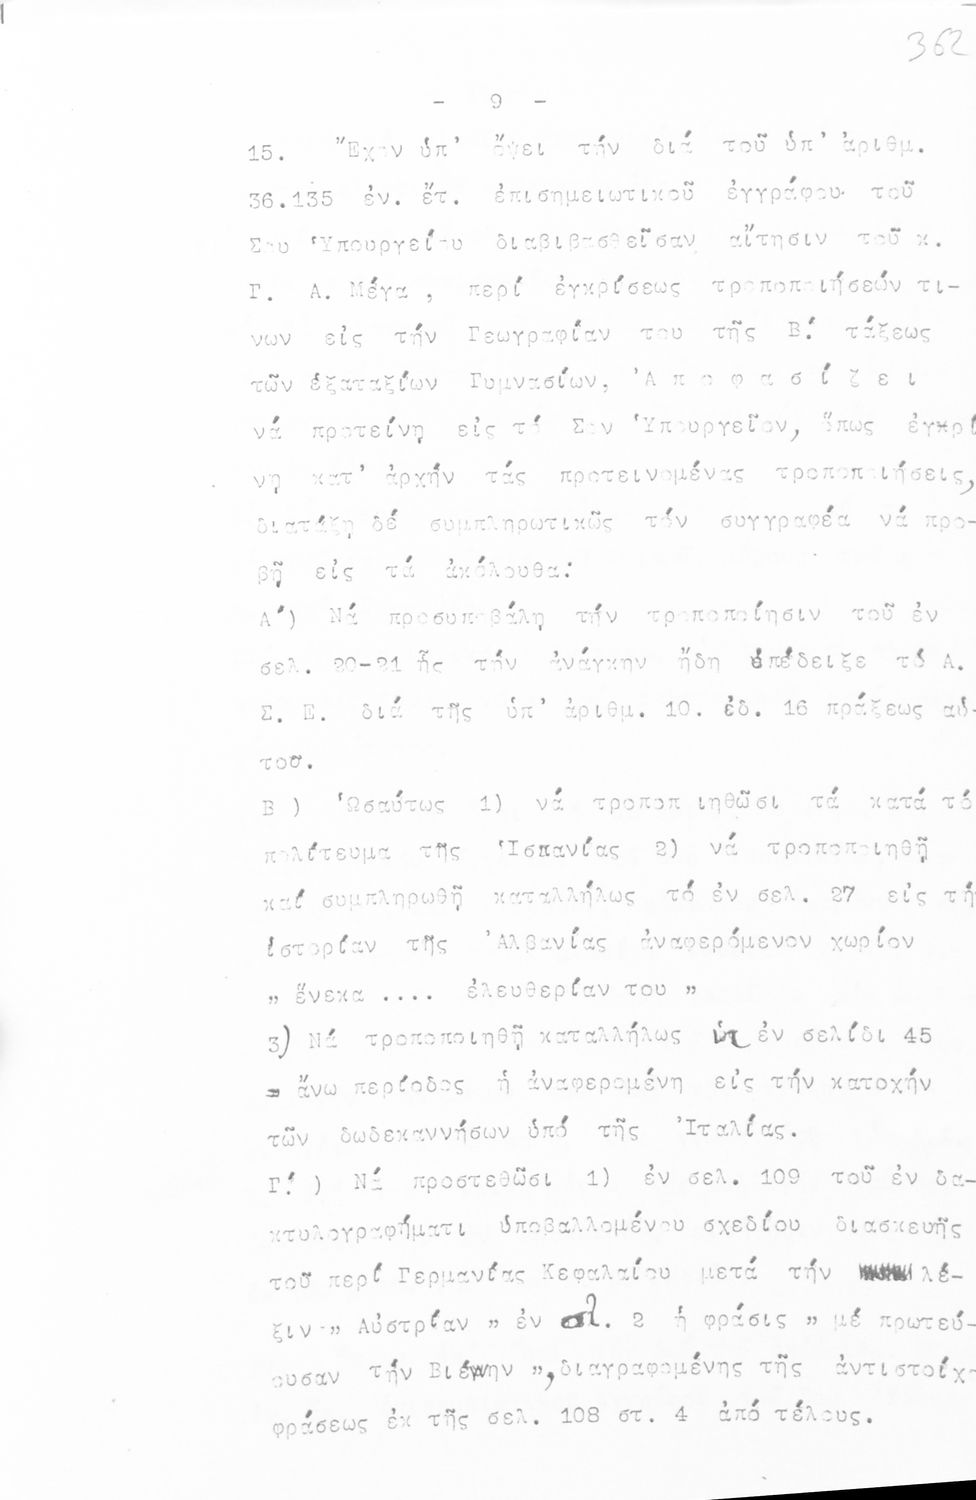 362
- 9 -
15. Ἔχον ὑπ' ὄψει τήν διά τοῦ ὑπ' ἀριθμ.
36.135 ἐν. ἔτ. ἐπισημειωτικοῦ ἐγγράφου τοῦ
Σου Ὑπουργείου διαβιβασθεῖσαν αἴτησιν τοῦ κ.
Γ. Α. Μέγα, περί ἐγκρίσεως τροποποιήσεών τι-
νων εἰς τήν Γεωγραφίαν του τῆς Β΄. τάξεως
τῶν ἑξαταξίων Γυμνασίων, Ἀ π ο φ α σ ί ζ ε ι
νά προτείνῃ εἰς τό Σον Ὑπουργεῖον, ὅπως ἐγκρί
νῃ κατ' ἀρχήν τάς προτεινομένας τροποποιήσεις,
διατάξῃ δέ συμπληρωτικῶς τόν συγγραφέα νά προ-
βῇ εἰς τά ἀκόλουθα:
Α΄) Νά προσυποβάλῃ τήν τροποποίησιν τοῦ ἐν
σελ. 20-21 ἧς τήν ἀνάγκην ἤδη ὑπέδειξε τό Α.
Σ. Ε. διά τῆς ὑπ' ἀριθμ. 10. ἐδ. 16 πράξεως αὐ-
τοῦ.
Β ) Ὡσαύτως 1) νά τροποπ ιηθῶσι τά κατά τό
πολίτευμα τῆς Ἱσπανίας 2) νά τροποποιηθῇ
καί συμπληρωθῇ καταλλήλως τό ἐν σελ. 27 εἰς τή
ἱστορίαν τῆς Ἀλβανίας ἀναφερόμενον χωρίον
" ἕνεκα .... ἐλευθερίαν του "
3) Νά τροποποιηθῇ καταλλήλως ἐν σελίδι 45
= ἄνω περίοδος ἡ ἀναφερομένη εἰς τήν κατοχήν
τῶν δωδεκαννήσων ὑπό τῆς Ἰταλίας.
Γ΄. ) Νά προστεθῶσι 1) ἐν σελ. 109 τοῦ ἐν δα-
κτυλογραφήματι ὑποβαλλομένου σχεδίου διασκευῆς
τοῦ περί Γερμανίας Κεφαλαίου μετά τήν λέ-
ξιν " Αὐστρίαν " ἐν σλ. 2 ἡ φράσις " μέ πρωτεύ-
ουσαν τήν Βιέννην ", διαγραφομένης τῆς ἀντιστοίχ
φράσεως ἐκ τῆς σελ. 108 στ. 4 ἀπό τέλους.